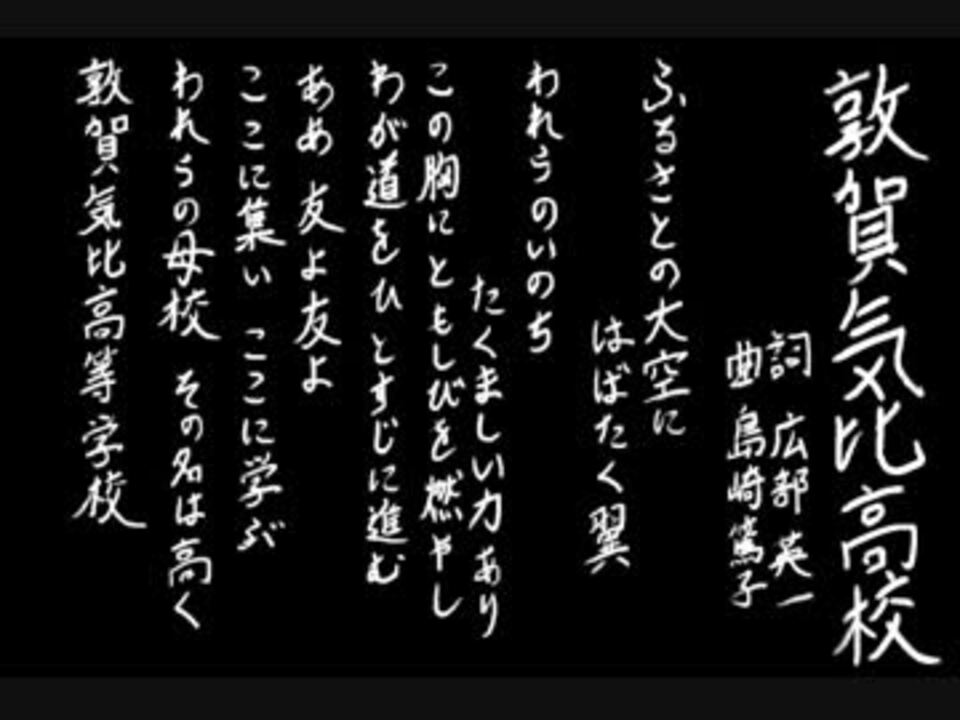 敦賀気比高校
詞 広部 英一
曲 島崎篤子
ふるさとの大空に
はばたく翼
われらのいのち
たくましい力あり
この胸にともしびを燃やし
わが道をひとすじに進む
ああ 友よ友よ
ここに集い ここに学ぶ
われらの母校 その名は高く
敦賀気比高等学校